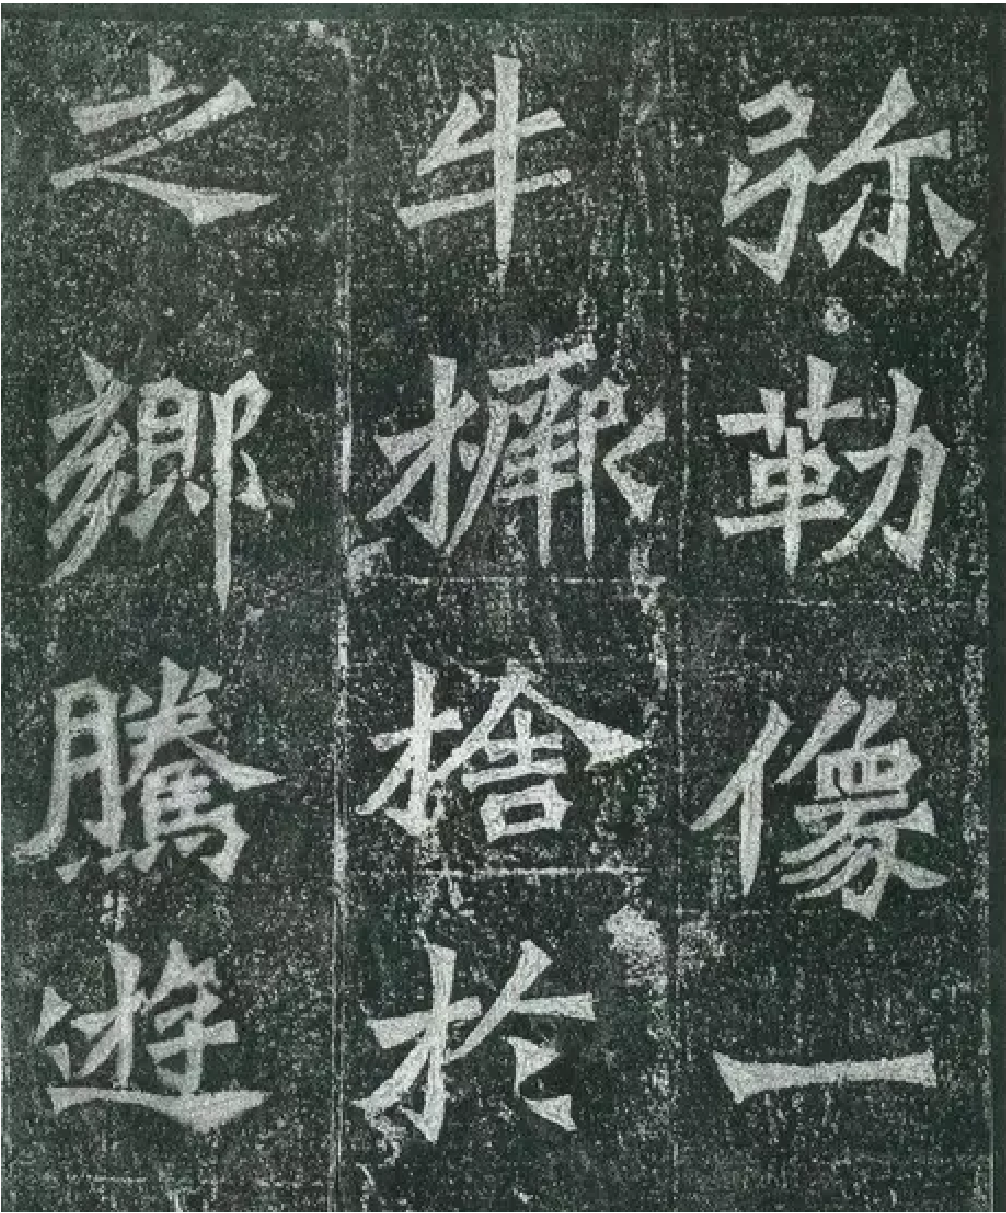 弥勒像一
牛橛捨於
之鄉騰遊